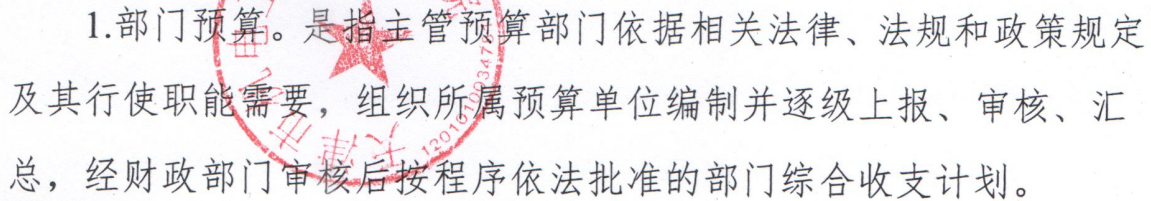 1.部门预算。是指主管预算部门依据相关法律、法规和政策规定
及其行使职能需要，组织所属预算单位编制并逐级上报、审核、汇
总，经财政部门审核后按程序依法批准的部门综合收支计划。
天津市